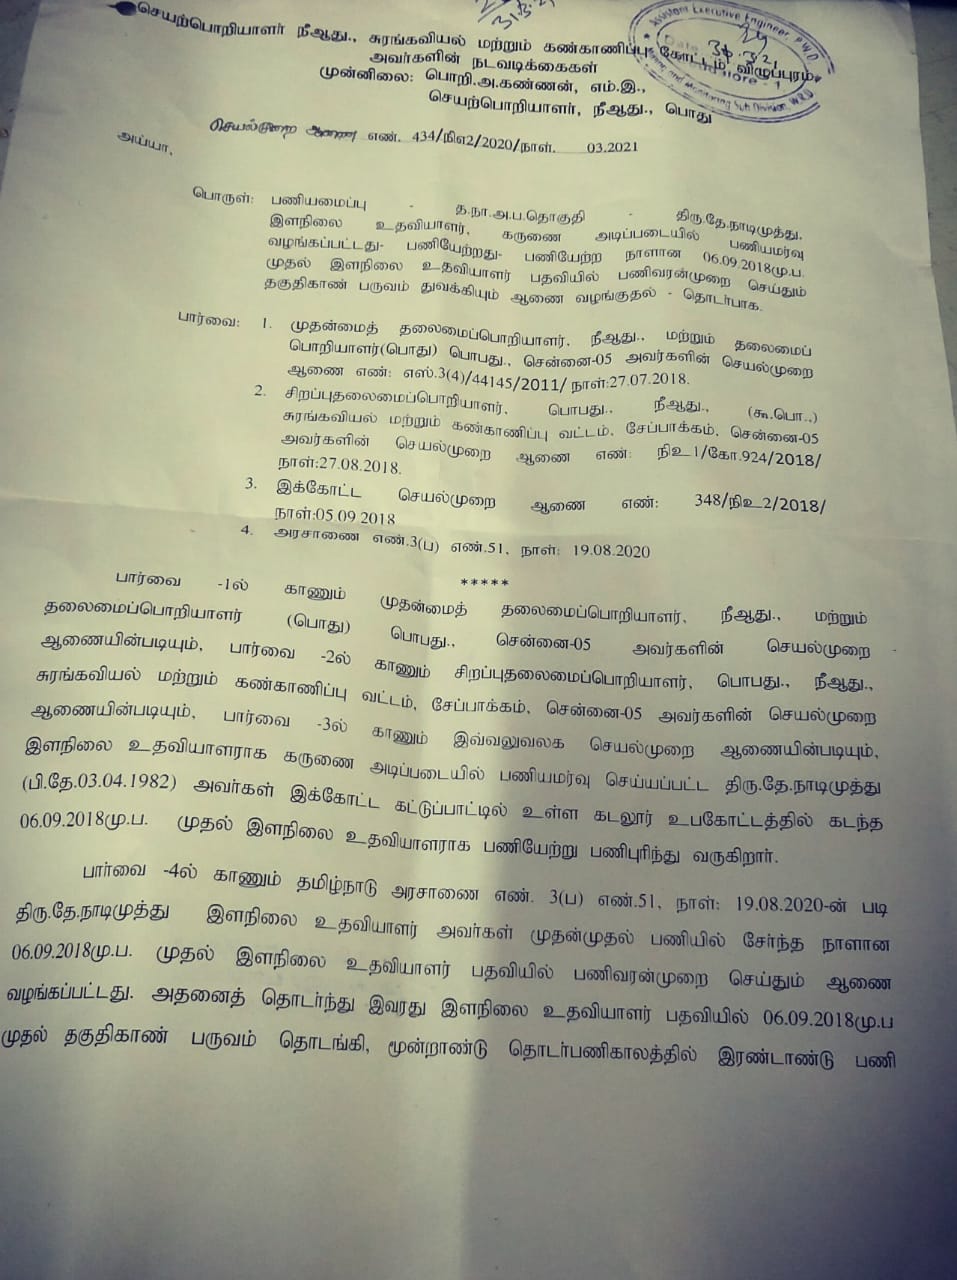 31.3.21
Assistant Executive Engineer, P.W.D
29
30.3.21
and Monitoring Sub Division, W.R.D.
செயற்பொறியாளர் நீஆது., சுரங்கவியல் மற்றும் கண்காணிப்பு கோட்டம், விழுப்புரம்
அவர்களின் நடவடிக்கைகள்
முன்னிலை: பொறி.அ.கண்ணன், எம்.இ.,
செயற்பொறியாளர், நீஆது., பொது
செயல்முறை ஆணை எண். 434/நிஎ2/2020/நாள். 03.2021
அய்யா,
பொருள்: பணியமைப்பு - த.நா.அ.ப.தொகுதி - திரு.தே.நாடிமுத்து,
இளநிலை உதவியாளர், கருணை அடிப்படையில் பணியமர்வு
வழங்கப்பட்டது- பணியேற்றது- பணியேற்ற நாளான 06.09.2018மு.ப.
முதல் இளநிலை உதவியாளர் பதவியில் பணிவரன்முறை செய்தும்
தகுதிகாண் பருவம் துவக்கியும் ஆணை வழங்குதல் - தொடர்பாக.
பார்வை: 1. முதன்மைத் தலைமைப்பொறியாளர், நீஆது., மற்றும் தலைமைப்
பொறியாளர்(பொது) பொபது., சென்னை-05 அவர்களின் செயல்முறை
ஆணை எண்: எஸ்.3(4)/44145/2011/ நாள்:27.07.2018.
2. சிறப்புதலைமைப்பொறியாளர், பொபது., நீஆது., (கூ.பொ.,)
சுரங்கவியல் மற்றும் கண்காணிப்பு வட்டம், சேப்பாக்கம், சென்னை-05
அவர்களின் செயல்முறை ஆணை எண்: நிஉ1/கோ.924/2018/
நாள்:27.08.2018.
3. இக்கோட்ட செயல்முறை ஆணை எண்: 348/நிஉ2/2018/
நாள்:05.09.2018
4. அரசாணை எண்.3(ப) எண்.51, நாள்: 19.08.2020
*****
பார்வை -1ல் காணும் முதன்மைத் தலைமைப்பொறியாளர், நீஆது., மற்றும்
தலைமைப்பொறியாளர் (பொது) பொபது., சென்னை-05 அவர்களின் செயல்முறை
ஆணையின்படியும், பார்வை -2ல் காணும் சிறப்புதலைமைப்பொறியாளர், பொபது., நீஆது.,
சுரங்கவியல் மற்றும் கண்காணிப்பு வட்டம், சேப்பாக்கம், சென்னை-05 அவர்களின் செயல்முறை
ஆணையின்படியும், பார்வை -3ல் காணும் இவ்வலுவலக செயல்முறை ஆணையின்படியும்,
இளநிலை உதவியாளராக கருணை அடிப்படையில் பணியமர்வு செய்யப்பட்ட திரு.தே.நாடிமுத்து
(பி.தே.03.04.1982) அவர்கள் இக்கோட்ட கட்டுப்பாட்டில் உள்ள கடலூர் உபகோட்டத்தில் கடந்த
06.09.2018மு.ப. முதல் இளநிலை உதவியாளராக பணியேற்று பணிபுரிந்து வருகிறார்.
பார்வை -4ல் காணும் தமிழ்நாடு அரசாணை எண். 3(ப) எண்.51, நாள்: 19.08.2020-ன் படி
திரு.தே.நாடிமுத்து இளநிலை உதவியாளர் அவர்கள் முதன்முதல் பணியில் சேர்ந்த நாளான
06.09.2018மு.ப. முதல் இளநிலை உதவியாளர் பதவியில் பணிவரன்முறை செய்தும் ஆணை
வழங்கப்பட்டது. அதனைத் தொடர்ந்து இவரது இளநிலை உதவியாளர் பதவியில் 06.09.2018மு.ப
முதல் தகுதிகாண் பருவம் தொடங்கி, மூன்றாண்டு தொடர்பணிகாலத்தில் இரண்டாண்டு பணி